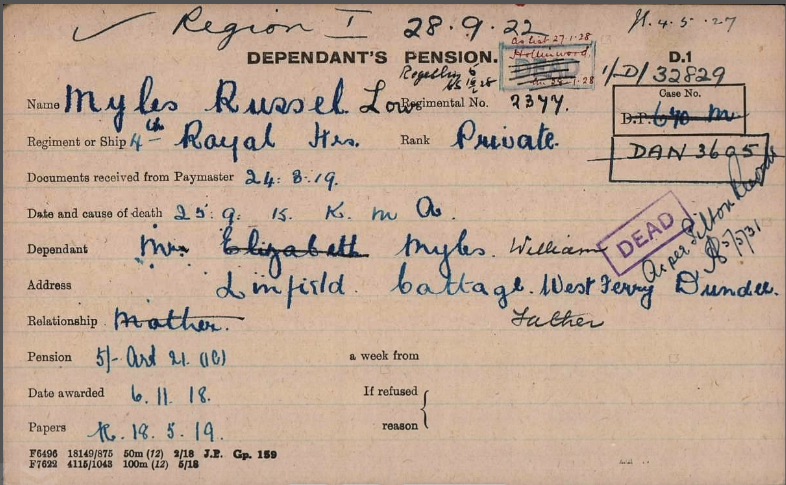 ✓ Region I 28.9.22 4.5.27
DEPENDANT'S PENSION. D.1
Hollinwood. 27.1.28
DEAD 1/D/32829
Name Myles Russel Low Regimental No. 2377. Case No.
D.P. 640 M
Regiment or Ship 4th Royal Hrs. Rank Private. DAN 3695
Documents received from Paymaster 24.8.19.
Date and cause of death 25.9.15. K. m A.
Dependant Mr. Elizabeth Myles. William DEAD As per 5/5/31
Address Linfield Cottage. West Ferry Dundee.
Relationship Mother. Father
Pension 5/- Art 21. (1C) a week from
Date awarded 6.11.18. If refused
Papers 18.5.19. reason
F6496 18149/875 50m (12) 2/18 J.P. Gp. 159
F7622 4115/1043 100m (12) 5/18